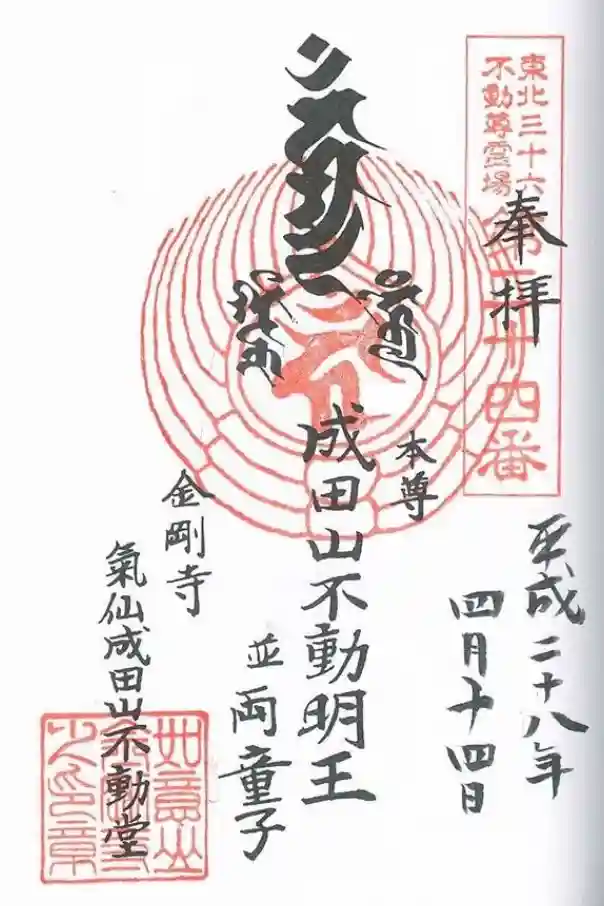 東北三十六
不動尊霊場
第二十四番
奉拝
平成二十八年
四月十四日
本尊
成田山不動明王
並両童子
金剛寺
氣仙成田山不動堂
如意山
之印章